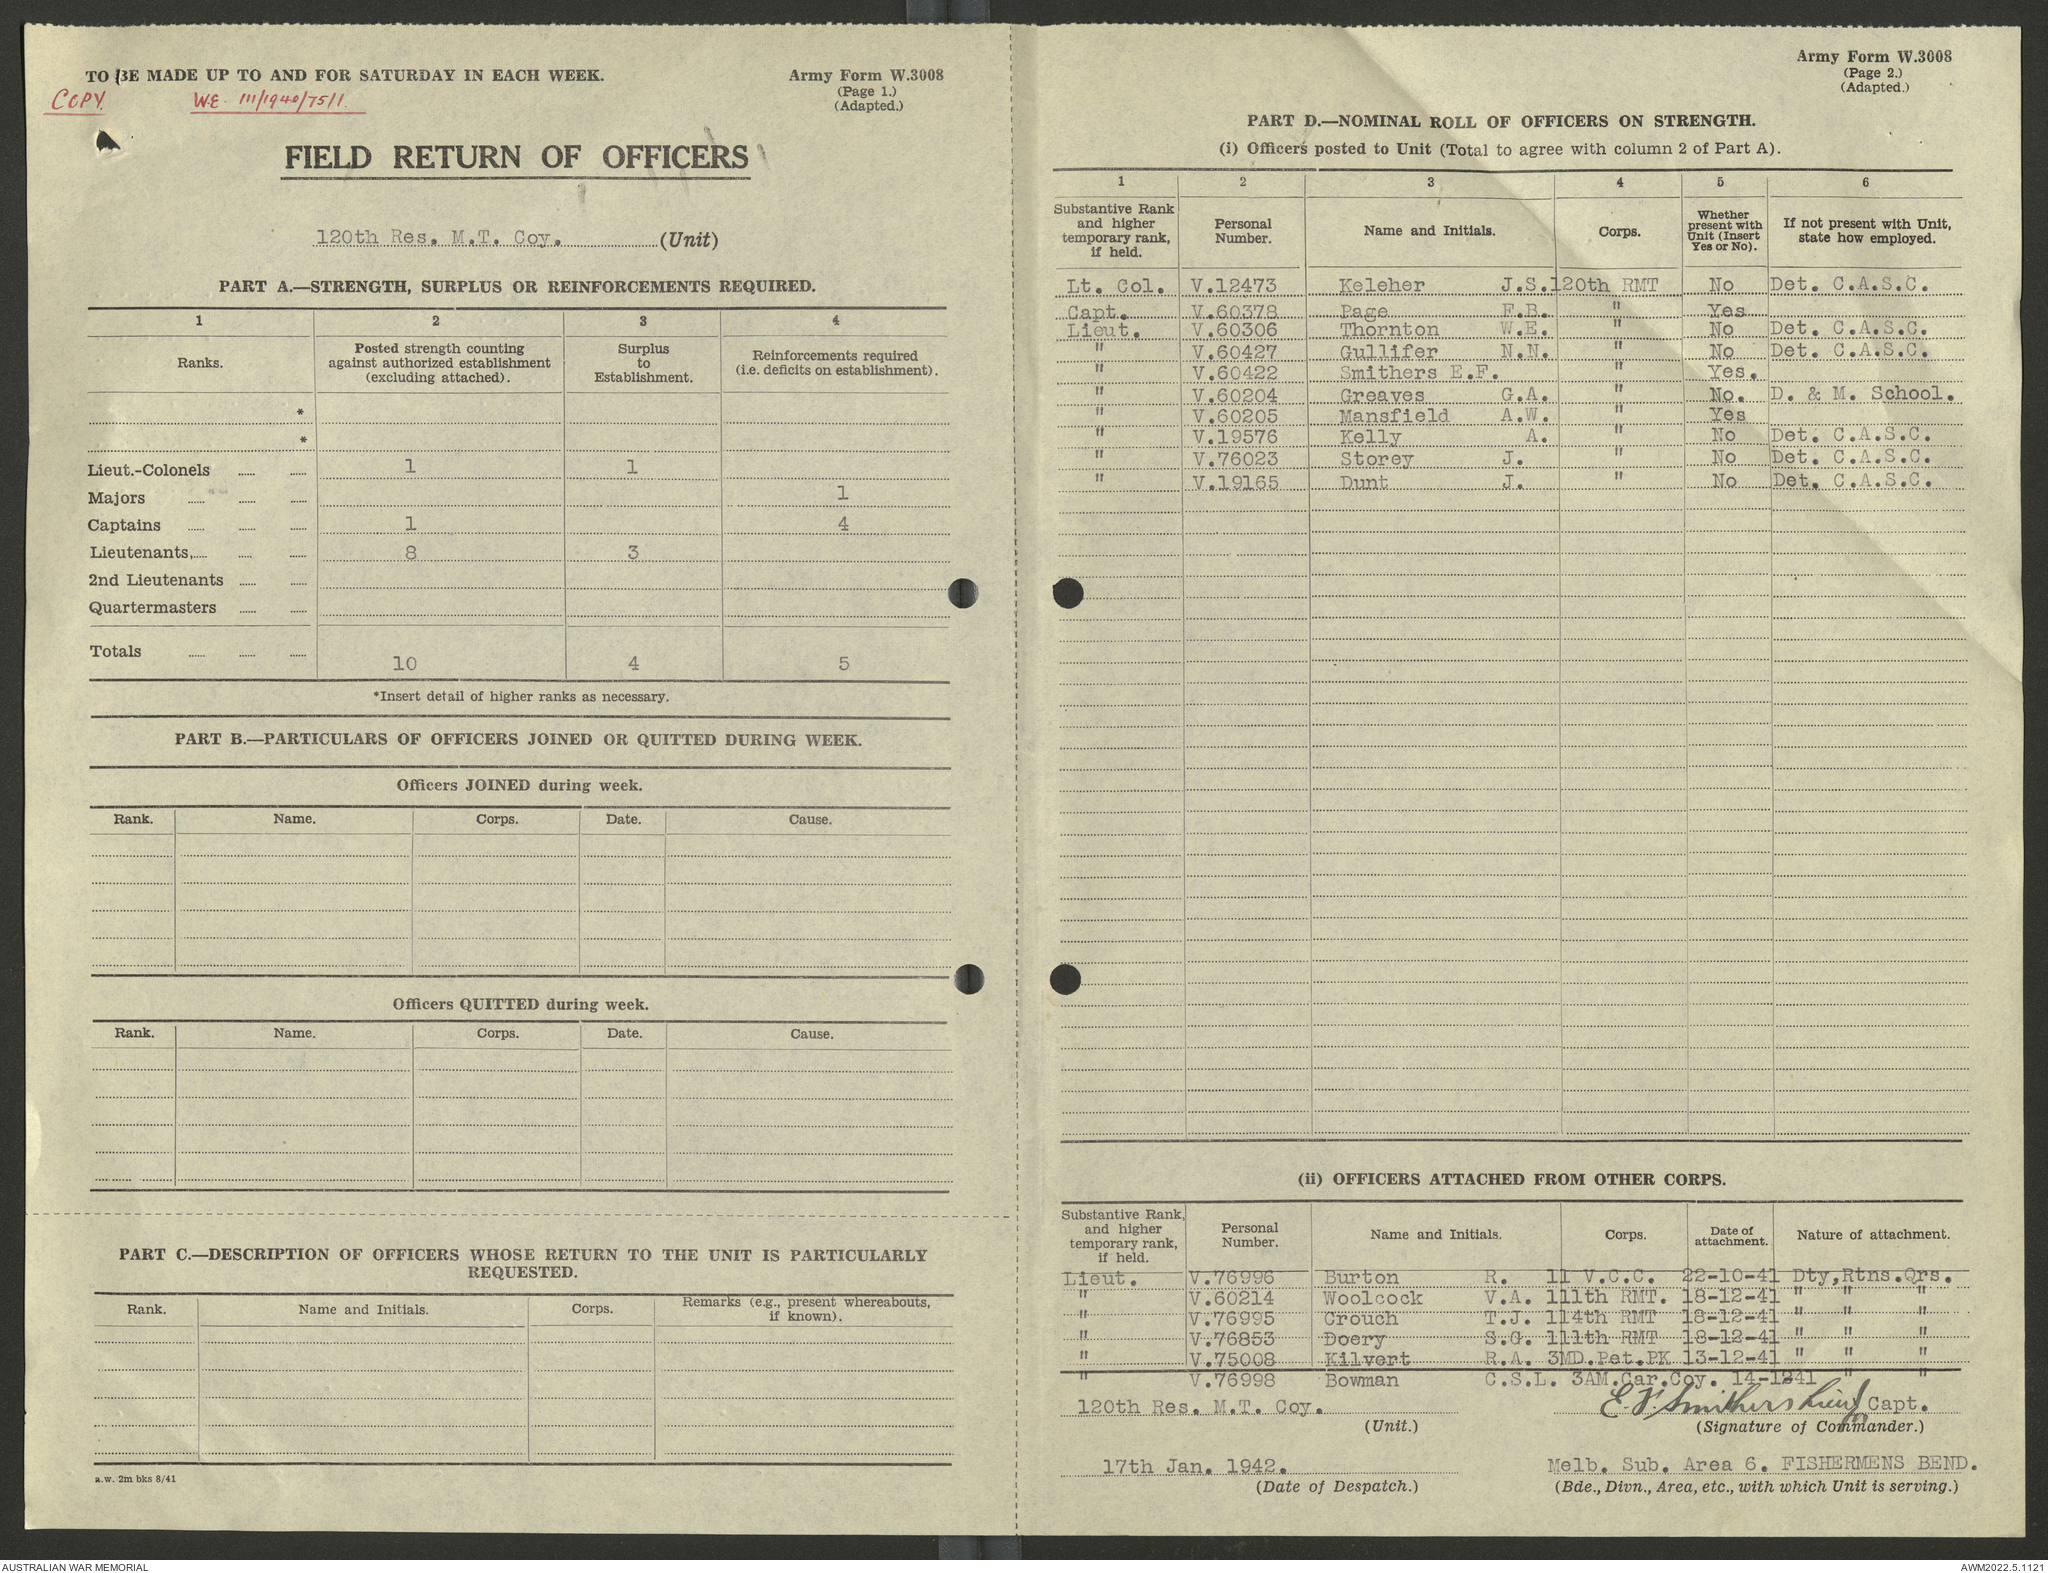 TO BE MADE UP TO AND FOR SATURDAY IN EACH WEEK.
Army Form W.3008
(Page 1.)
(Adapted.)
COPY
W.E. 111/1940/75/1.
FIELD RETURN OF OFFICERS
120th Res. M.T. Coy. (Unit)
PART A.—STRENGTH, SURPLUS OR REINFORCEMENTS REQUIRED.
1 2 3 4
Ranks. Posted strength counting against authorized establishment (excluding attached). Surplus to Establishment. Reinforcements required (i.e. deficits on establishment).
*
*
Lieut.-Colonels 1 1
Majors 1
Captains 1 4
Lieutenants, 8 3
2nd Lieutenants
Quartermasters
Totals 10 4 5
*Insert detail of higher ranks as necessary.
PART B.—PARTICULARS OF OFFICERS JOINED OR QUITTED DURING WEEK.
Officers JOINED during week.
Rank. Name. Corps. Date. Cause.
Officers QUITTED during week.
Rank. Name. Corps. Date. Cause.
PART C.—DESCRIPTION OF OFFICERS WHOSE RETURN TO THE UNIT IS PARTICULARLY
REQUESTED.
Rank. Name and Initials. Corps. Remarks (e.g., present whereabouts, if known).
a.w. 2m bks 8/41
Army Form W.3008
(Page 2.)
(Adapted.)
PART D.—NOMINAL ROLL OF OFFICERS ON STRENGTH.
(i) Officers posted to Unit (Total to agree with column 2 of Part A).
1 2 3 4 5 6
Substantive Rank and higher temporary rank, if held. Personal Number. Name and Initials. Corps. Whether present with Unit (Insert Yes or No). If not present with Unit, state how employed.
Lt. Col. V.12473 Keleher J.S. 120th RMT No Det. C.A.S.C.
Capt. V.60378 Page F.B. " Yes
Lieut. V.60306 Thornton W.E. " No Det. C.A.S.C.
" V.60427 Gullifer N.N. " No Det. C.A.S.C.
" V.60422 Smithers E.F. " Yes.
" V.60204 Greaves G.A. " No. D. & M. School.
" V.60205 Mansfield A.W. " Yes
" V.19576 Kelly A. " No Det. C.A.S.C.
" V.76023 Storey J. " No Det. C.A.S.C.
" V.19165 Dunt J. " No Det. C.A.S.C.
(ii) OFFICERS ATTACHED FROM OTHER CORPS.
Substantive Rank, and higher temporary rank, if held. Personal Number. Name and Initials. Corps. Date of attachment. Nature of attachment.
Lieut. V.76996 Burton R. 11 V.C.C. 22-10-41 Dty,Rtns.Qrs.
" V.60214 Woolcock V.A. 111th RMT. 18-12-41 " " "
" V.76995 Crouch T.J. 114th RMT 18-12-41 " " "
" V.76853 Doery S.G. 111th RMT 18-12-41 " " "
" V.75008 Kilvert R.A. 3MD.Pet.PK 13-12-41 " " "
" V.76998 Bowman C.S.L. 3AM.Car.Coy. 14-1241 " "
120th Res. M.T. Coy. E.F. Smithers Lieut Capt.
(Unit.) (Signature of Commander.)
17th Jan. 1942. Melb. Sub. Area 6. FISHERMENS BEND.
(Date of Despatch.) (Bde., Divn., Area, etc., with which Unit is serving.)
AUSTRALIAN WAR MEMORIAL AWM2022.5.1121